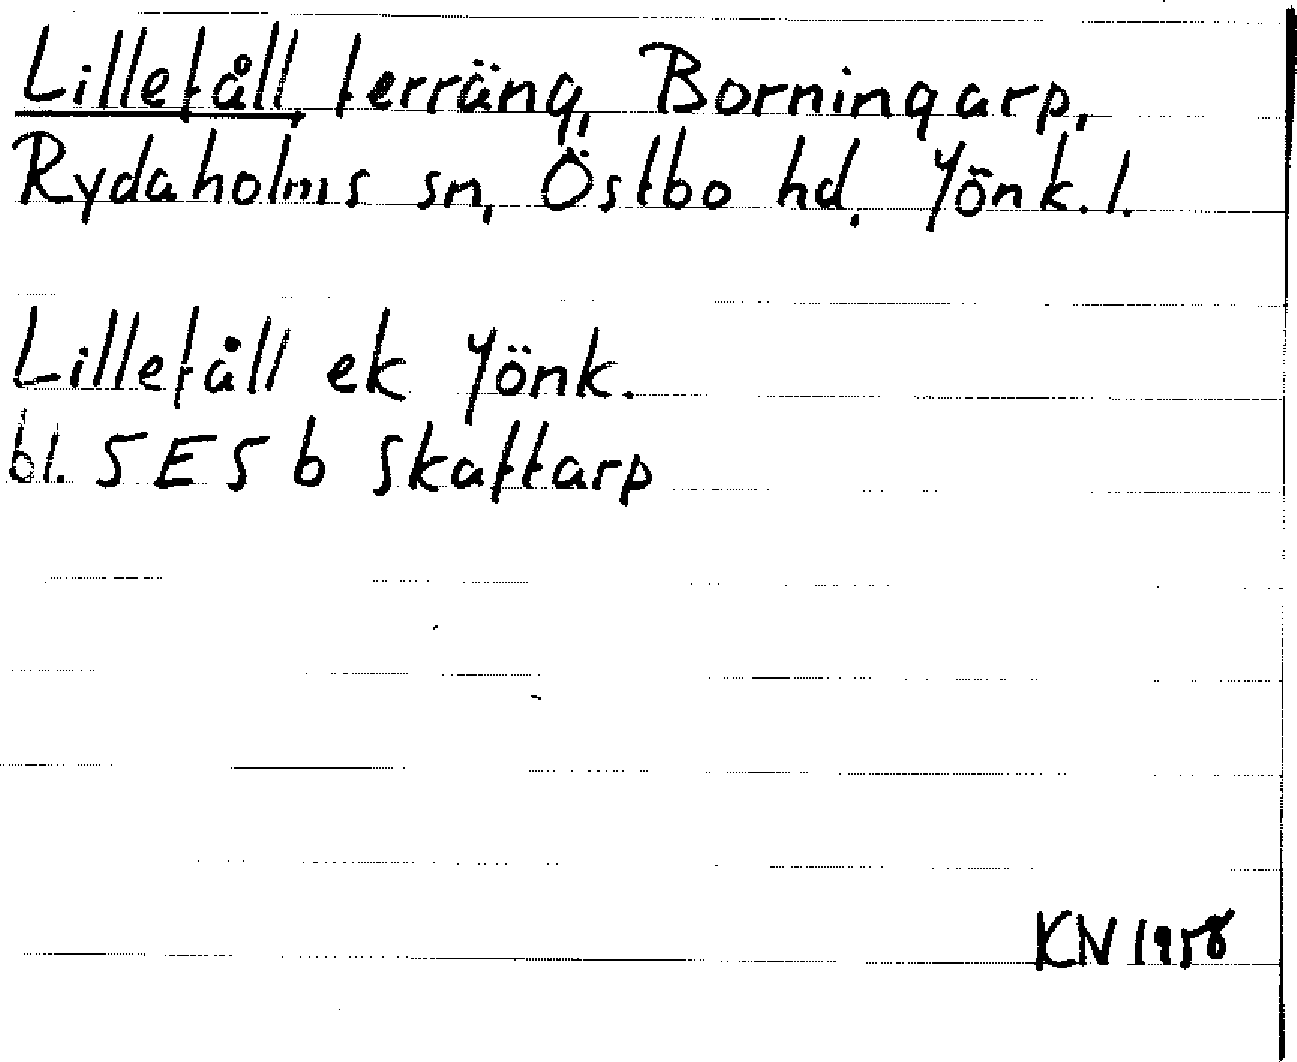 Lillefåll, terräng, Borningarp,
Rydaholms sn, Östbo hd, Jönk. l.
Lillefåll ek Jönk.
bl. 5E5b Skaftarp
KN 1958